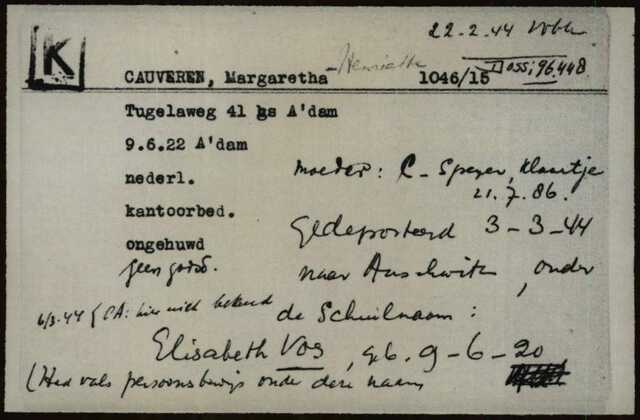 22-2-44 Wbk
K
CAUVEREN, Margaretha -Henriette 1046/15 Doss: 96.448
Tugelaweg 41 hs A'dam
9.6.22 A'dam
nederl. Moeder: C-Speyer, Klaartje
21.7.86.
kantoorbed.
gedeporteerd 3-3-44
ongehuwd
geen godsd. naar Auschwitz, onder
6/3-44 { CA: hier niet bekend de Schuilnaam:
Elisabeth Vos, geb. 9-6-20
(Had vals persoonsbewijs onder deze naam